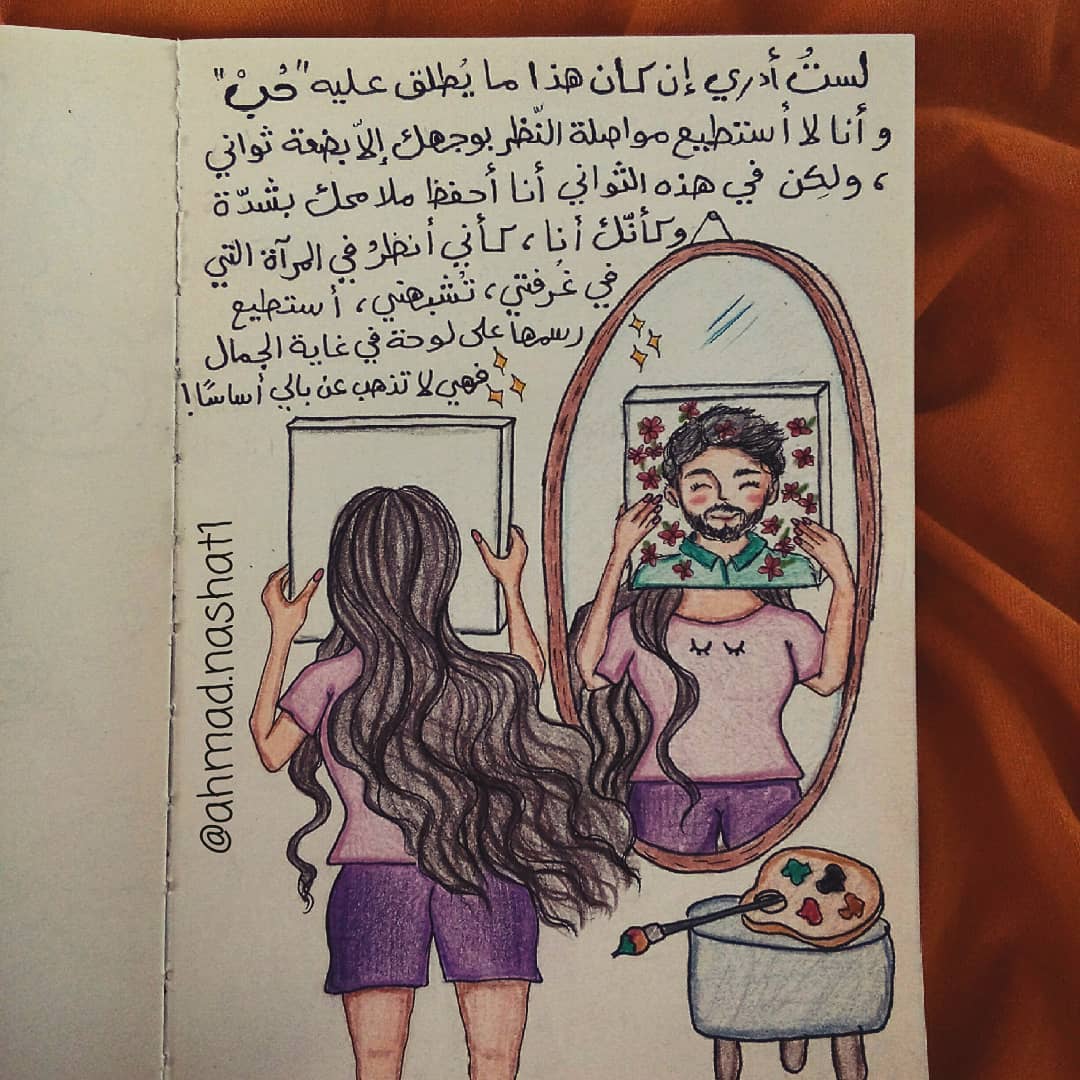 لستُ أدري إن كان هذا ما يُطلق عليه "حُبْ"
و أنا لا أستطيع مواصلة النّظر بوجهك إلاّ بضعة ثواني
، ولكِن في هذه الثواني أنا أحفظ ملامحك بشدّة
وكأنّك أنا، كأني أنظرُ في المرآة التي
في غُرفتي، تُشبهني، أستطيع
رسمها على لوحة في غاية الجمال
فهي لا تذهب عن بالي أساسًا!
@ahmad.nashat1